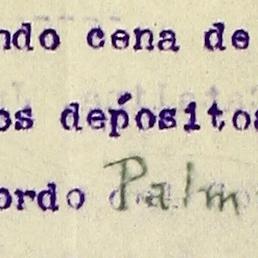 ndo cena de
os depósitos
ordo Palm